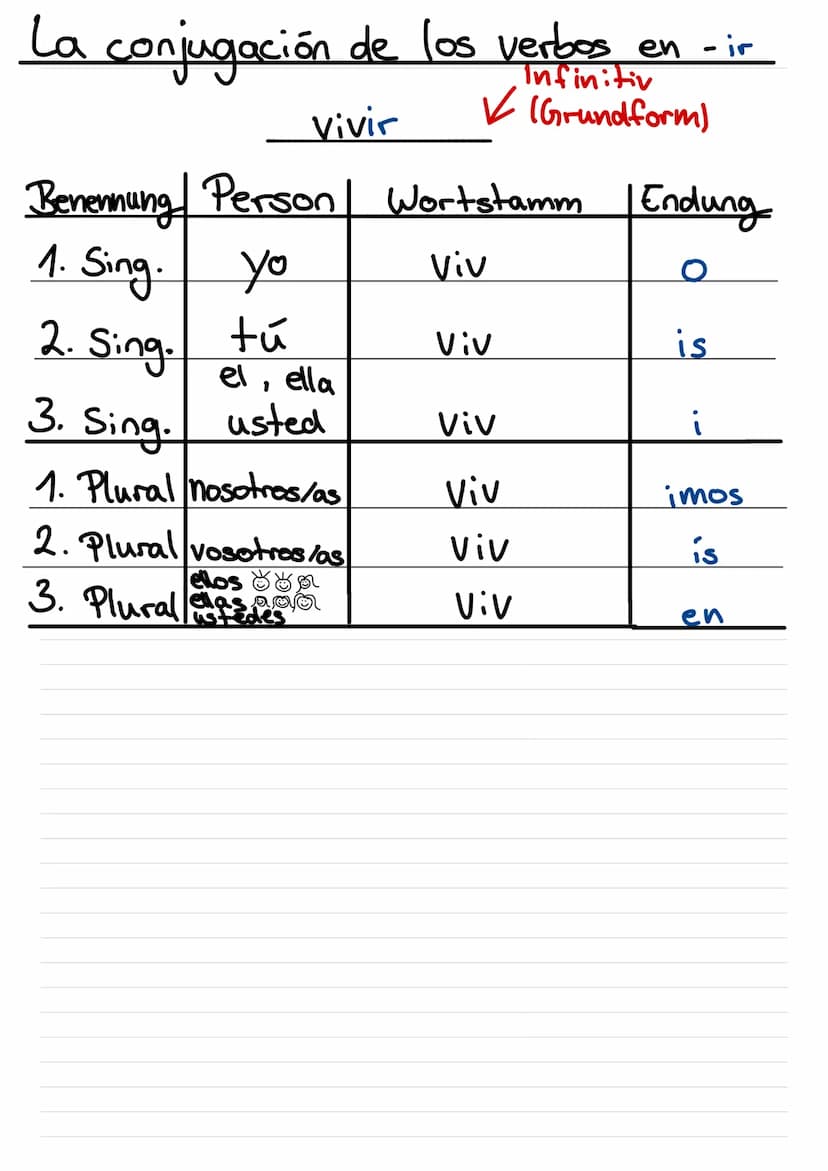 La conjugación de los verbos en -ir
Infinitiv
(Grundform)
vivir
Benennung Person Wortstamm Endung
1. Sing. yo viv o
2. Sing. tú viv is
el, ella
3. Sing. usted viv i
1. Plural nosotros/as viv imos
2. Plural vosotros/as viv ís
ellos
3. Plural ellas viv en
ustedes